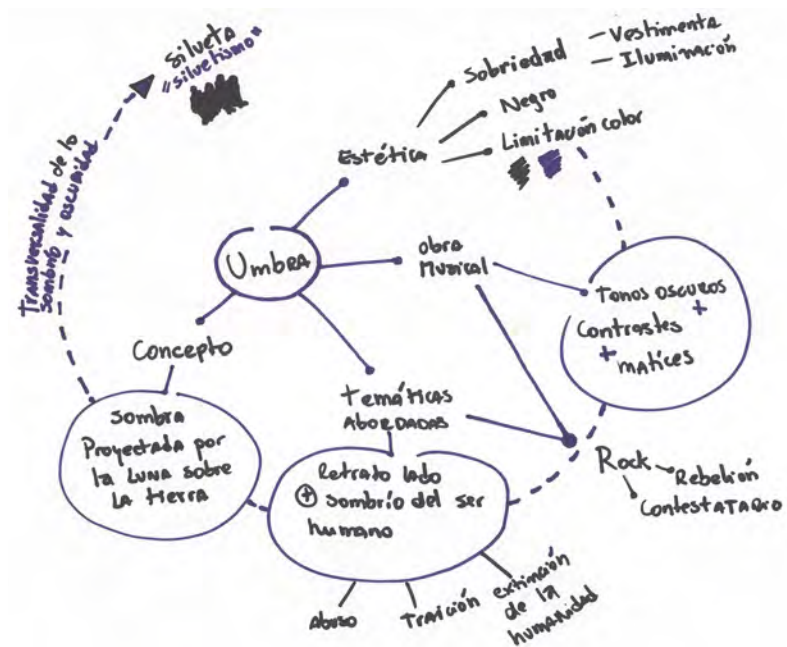 Silueta
"siluetismo"
Transversalidad de lo
sombrío y oscuridad
Estética
Sobriedad
– Vestimenta
– Iluminación
Negro
Limitación color
Umbra
Obra
Musical
Tonos oscuros
+
Contrastes
+
matices
Concepto
Sombra
Proyectada por
la Luna sobre
La tierra
Temáticas
Abordadas
Retrato lado
⊕ sombrío del ser
humano
Abuso
Traición
extinción
de la
humanidad
Rock
Rebelión
Contestatario